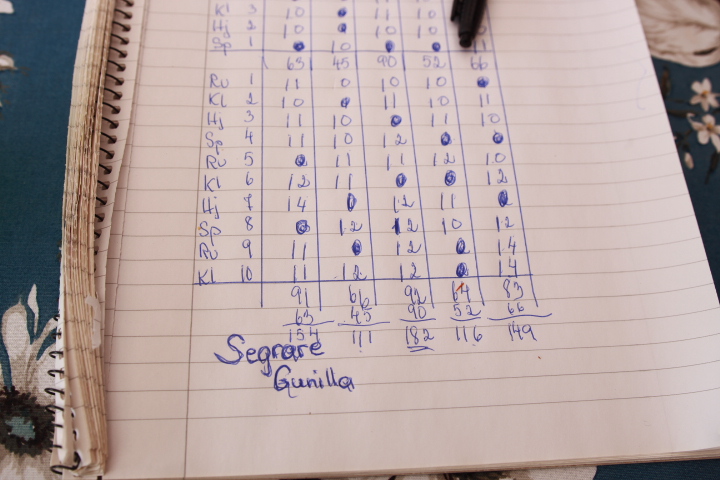 Kl 3 10 ● 11 10
Hj 2 10 ● 10 10
Sp 1 ● 10 ● ● 11
63 45 90 52 66
Ru 1 11 0 10 10 ●
Kl 2 10 ● 11 10 11
Hj 3 11 10 ● 11 10
Sp 4 11 10 12 ● ●
Ru 5 ● 11 11 12 10
Kl 6 12 11 ● ● 12
Hj 7 14 ● 12 11 ●
Sp 8 ● 12 12 10 12
Ru 9 11 ● 12 ● 14
Kl 10 11 12 12 ● 14
91 66 92 64 83
63 45 90 52 66
154 111 182 116 149
Segrare
Gunilla